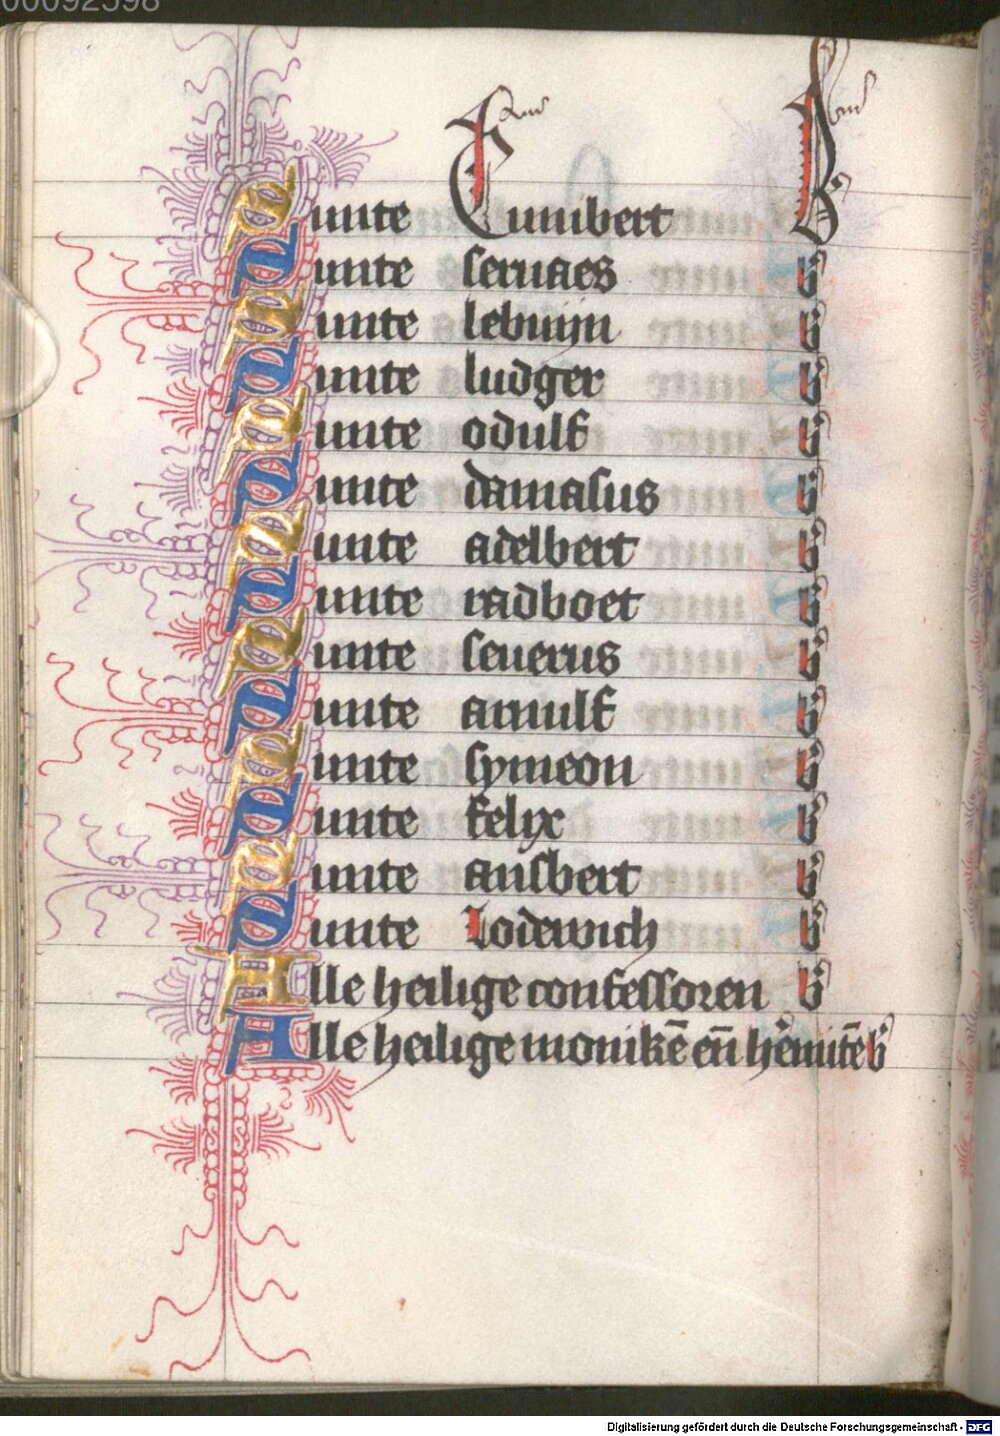 00092598
Sunte Cunibert B
Sunte seruaes b
Sunte lebuijn b
Sunte ludger b
Sunte odulf b
Sunte damasus b
Sunte adelbert b
Sunte radboet b
Sunte seuerus b
Sunte arnulf b
Sunte symeon b
Sunte felix b
Sunte ansbert b
Sunte Lodewich b
Alle heilige confessoren b
Alle heilige monikē eñ h'emitē b
Digitalisierung gefördert durch die Deutsche Forschungsgemeinschaft - DFG